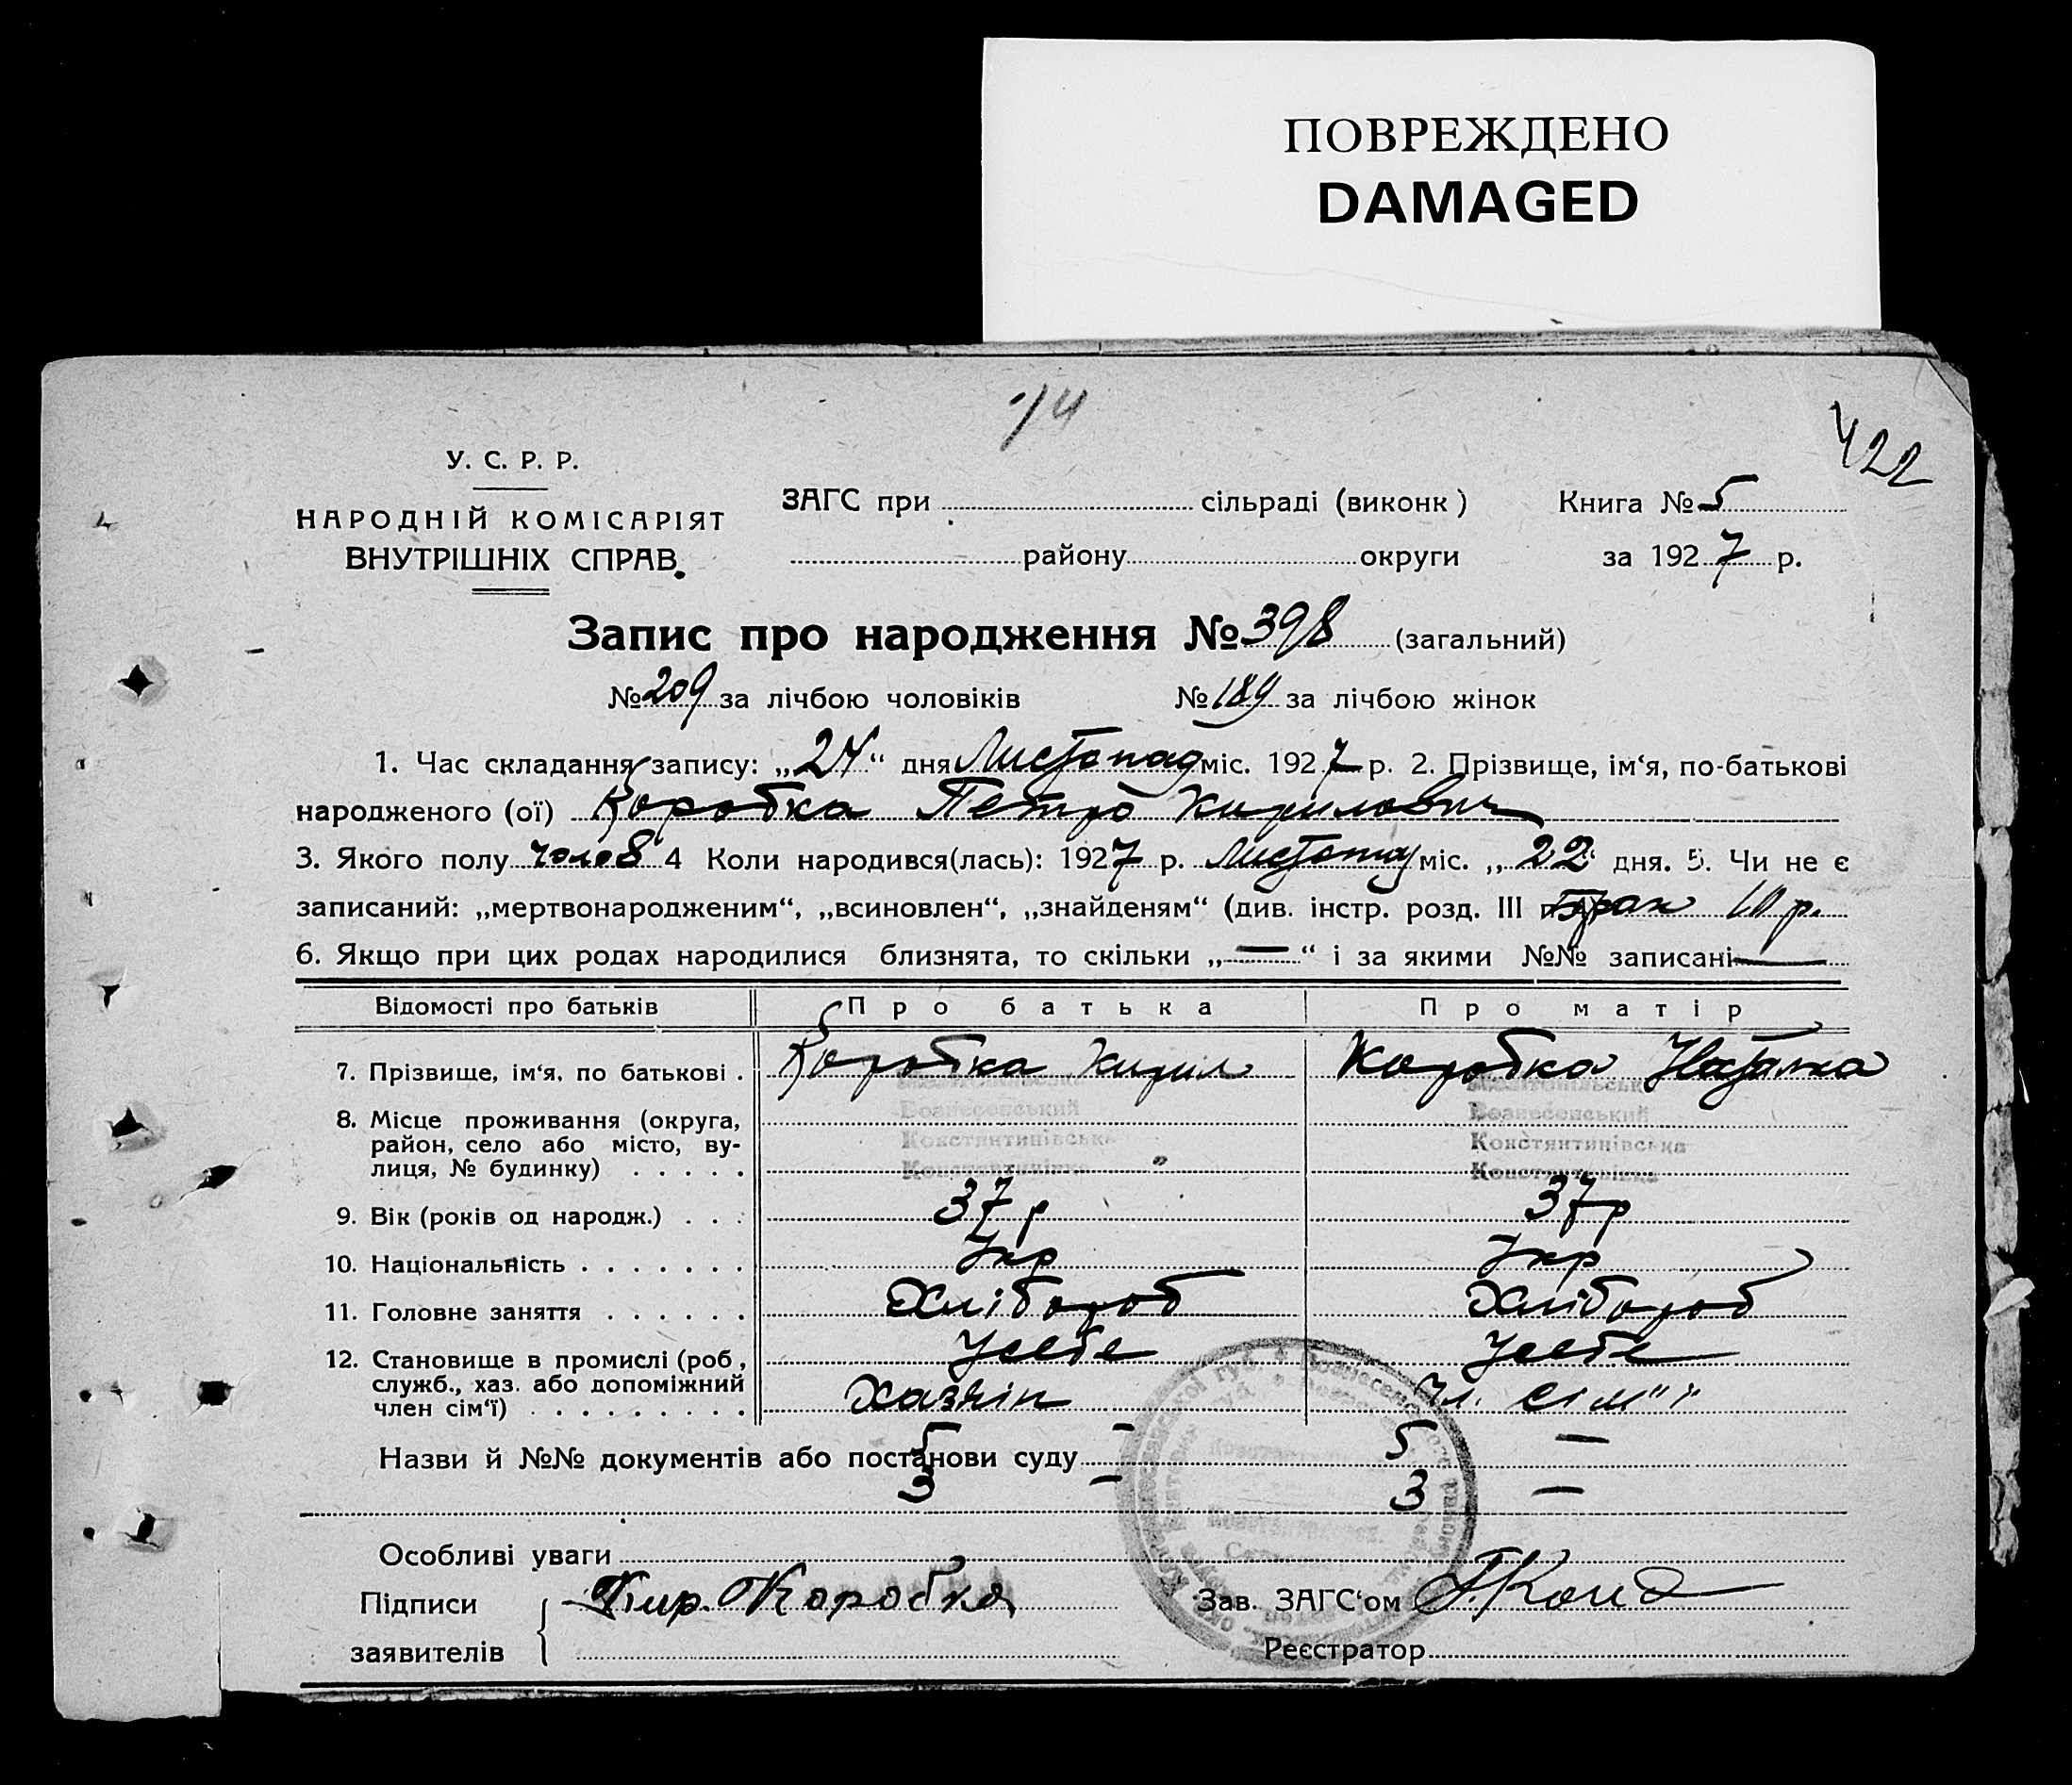 ПОВРЕЖДЕНО
DAMAGED
422
У. С. Р. Р.
НАРОДНІЙ КОМІСАРІЯТ
ВНУТРІШНІХ СПРАВ.
ЗАГС при сільраді (виконк) Книга № 5
району округи за 1927 р.
Запис про народження № 398 (загальний)
№ 209 за лічбою чоловіків № 189 за лічбою жінок
1. Час складання запису: „24“ дня Листопад міс. 1927 р. 2. Прізвище, ім‘я, по-батькові
народженого (ої) Коробка Петро Кирилович
3. Якого полу чолов 4 Коли народився(лась): 1927 р. Листопад міс. „22“ дня. 5. Чи не є
записаний: „мертвонародженим“, „всиновлен“, „знайденям“ (див. інстр. розд. III
6. Якщо при цих родах народилися близнята, то скільки „—“ і за якими №№ записані —
Відомості про батьків Про батька Про матір
7. Прізвище, ім‘я, по батькові . Коробка Кирил Коробка Наталка
8. Місце проживання (округа,
район, село або місто, ву-
лиця, № будинку) . . . . .
Мелітопільська
Вознесенський Вознесенський
Константинівська Константинівська
Константинівка " Константинівка
9. Вік (років од народж.) . . . 37 р 37 р
10. Національність . . . . . . . Укр Укр
11. Головне заняття . . . . . . Хлібороб Хлібороб
12. Становище в промислі (роб,
служб., хаз. або допоміжний
член сім‘ї) . . . . . . . . .
У себе У себе
Хазяін Чл. сім"ї
Назви й №№ документів або постанови суду
5 – 5 –
3 – 3 –
Особливі уваги
Підписи
заявителів
Кир. Коробка
Зав. ЗАГС‘ом
Реєстратор